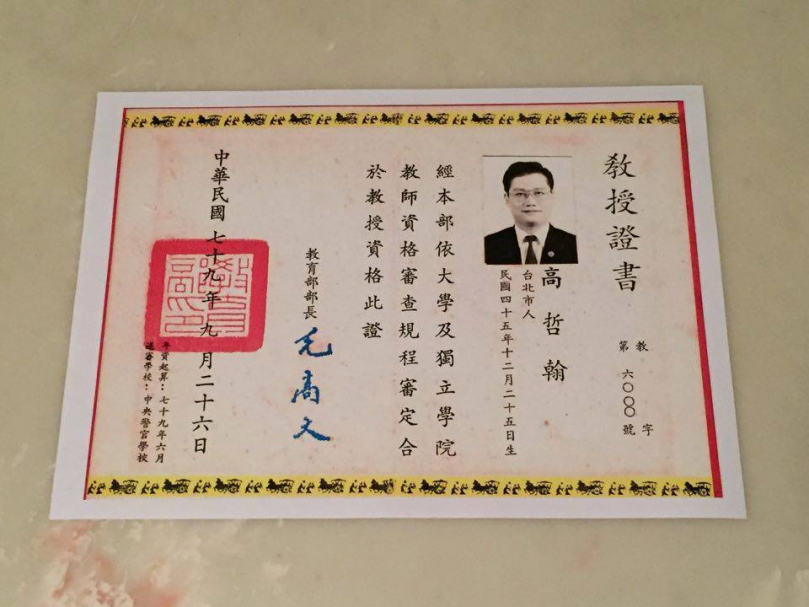 教授證書
教字
第六〇〇〇號
高哲翰
台北市人
民國四十五年十二月二十五日生
經本部依大學及獨立學院
教師資格審查規程審定合
於教授資格此證
教育部部長
毛高文
中華民國七十九年九月二十六日
年資起算：七十九年六月
送審學校：中央警官學校